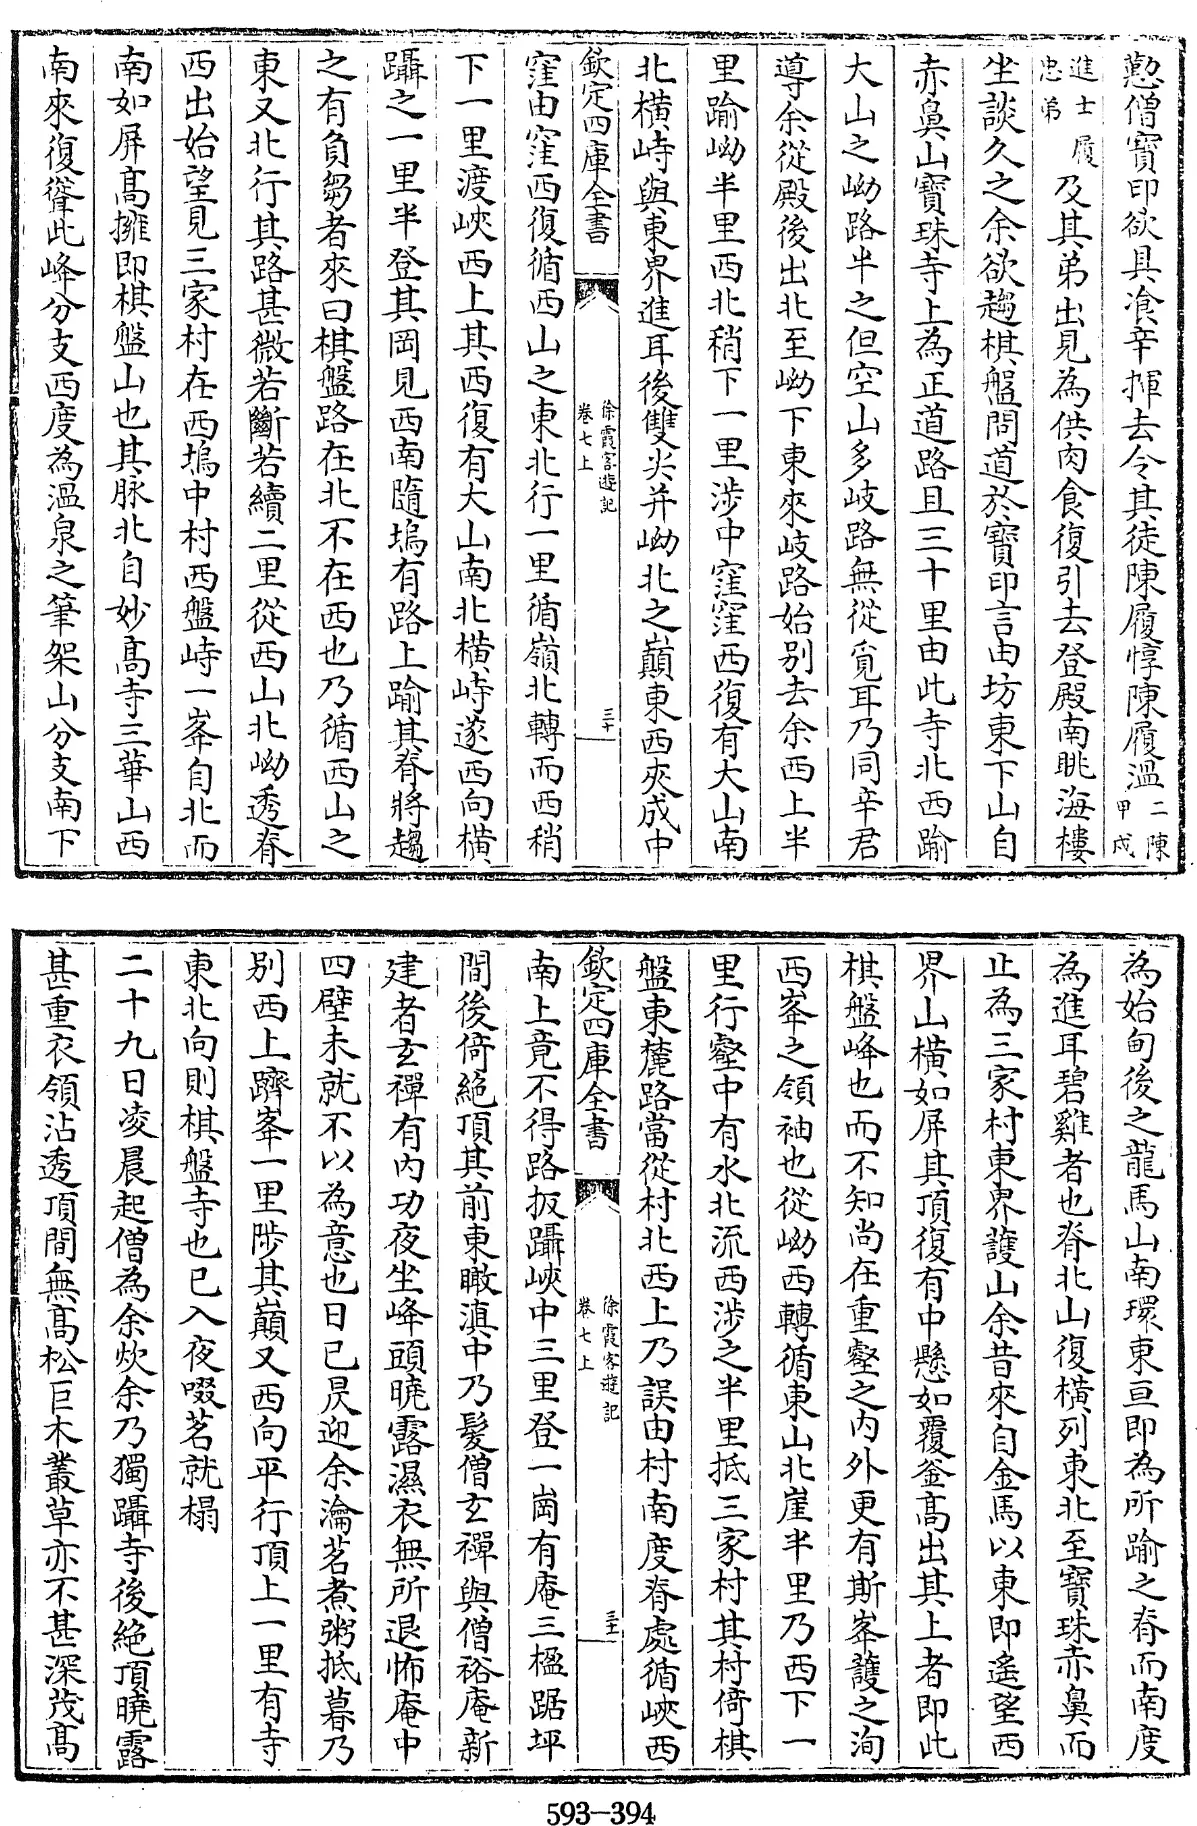 懃僧寶印欲具飡辛揮去令其徒陳履惇陳履溫二陳甲戌
進士履忠弟及其弟出見為供肉食復引去登殿南眺海樓
坐談久之余欲趨棋盤問道於寶印言由坊東下山自
赤鼻山寶珠寺上為正道路且三十里由此寺北西踰
大山之岰路半之但空山多岐路無從覓耳乃同辛君
導余從殿後出北至岰下東來岐路始别去余西上半
里踰岰半里西北稍下一里涉中窪窪西復有大山南
北横峙與東界進耳後雙尖并岰北之巔東西夾成中
欽定四庫全書
徐霞客遊記
卷七上
三十
窪由窪西復循西山之東北行一里循嶺北轉而西稍
下一里渡峽西上其西復有大山南北横峙遂西向横
躡之一里半登其岡見西南隨塢有路上踰其脊將趨
之有負芻者來曰棋盤路在北不在西也乃循西山之
東又北行其路甚微若斷若續二里從西山北岰透脊
西出始望見三家村在西塢中村西盤峙一峯自北而
南如屏高擁即棋盤山也其脉北自妙高寺三華山西
南來復聳此峰分支西度為温泉之筆架山分支南下
為始甸後之龍馬山南環東亘即為所踰之脊而南度
為進耳碧雞者也脊北山復横列東北至寶珠赤鼻而
止為三家村東界護山余昔來自金馬以東即遙望西
界山横如屏其頂復有中懸如覆釜高出其上者即此
棋盤峰也而不知尚在重壑之内外更有斯峯護之洵
西峯之領袖也從岰西轉循東山北崖半里乃西下一
里行壑中有水北流西涉之半里抵三家村其村倚棋
盤東麓路當從村北西上乃誤由村南度脊處循峽西
欽定四庫全書
徐霞客遊記
卷七上
三十一
南上竟不得路扳躡峽中三里登一崗有庵三楹踞坪
間後倚絶頂其前東瞰滇中乃髮僧玄禪與僧裕庵新
建者玄禪有内功夜坐峰頭曉露濕衣無所退怖庵中
四壁未就不以為意也日已昃迎余瀹茗煮粥抵暮乃
别西上躋峯一里陟其巔又西向平行頂上一里有寺
東北向則棋盤寺也已入夜啜茗就榻
二十九日凌晨起僧為余炊余乃獨躡寺後絶頂曉露
甚重衣領沾透頂間無髙松巨木叢草亦不甚深茂高
593-394